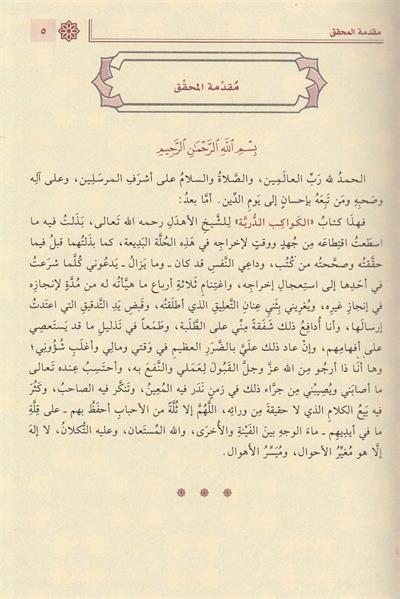 مقدمة المحقق
٥
مُقدِّمة المحقِّق
بِسْمِ اللَّهِ الرَّحْمَٰنِ الرَّحِيمِ
الحمدُ لله رَبِّ العـالَمِين، والصَّلاةُ والسلامُ على أشرَفِ المرسَلِين، وعلى آلِه
وصَحبِهِ ومَن تَبِعَهُ بإحسانٍ إلى يَومِ الدِّين. أمَّا بعدُ:
فهذا كتابُ «الكَواكِب الدُّريَّة» لِلشَّيخِ الأهدَلِ رحمه الله تعالى، بَذَلتُ فيه ما
اسطَعتُ اقتِطاعَه مِن جُهدٍ ووقتٍ لإخراجِه في هَذِه الحُلَّة البَدِيعة، كما بذَلتُهما قبلُ فيما
حقَّقتُه وصحَّحتُه من كُتُب، وداعِي النَّفسِ قد كان ـ وما يَزالُ ـ يَدعُوني كُلَّما شرَعتُ
في أحَدِها إلى استِعجالِ إخراجِه، واغتِنامِ ثلاثةِ أرباعِ ما هيَّأتُه له من مُدَّةٍ لإنجازِه
في إنجازِ غيرِه، ويُغرِيني بِثَنيِ عِنانِ التَّعلِيقِ الذي أطلَقتُه، وقَبضِ يَدِ التَّدقيقِ التي اعتَدتُ
إرسالَها، وأنا أُدافِعُ ذلك شَفَقةً مِنِّي على الطَّلَبة، وطَمَعاً في تَذلِيلِ ما قد يَستَعصِي
على أفهامِهم، وإن عاد ذلك علَيَّ بالضَّرَرِ العظيمِ في وَقتِي ومالِي وأغلَبِ شُؤونِي؛
وها أنا ذا أرجُو مِن الله عزَّ وجلَّ القَبُولَ لِعَمَلي والنَّفعَ به، وأحتَسِبُ عِندَه تعالى
ما أصابَني ويُصِيبُني مِن جرَّاء ذلك في زمَنٍ نَدَر فيه المُعِينُ، وتَنكَّر فيه الصاحِبُ، وكَثُرَ
فِيه بَيعُ الكلامِ الذي لا حقيقةَ مِن ورائِه، اللَّهُمَّ إلا ثُلَّةً من الأحبابِ أحفَظُ بهم ـ على قِلَّةِ
ما في أيدِيهِم ـ ماءَ الوجهِ بينَ الفَينَةِ والأُخرَى، والله المُستَعان، وعليه التُّكلان، لا إلهَ
إلَّا هو مُغيِّرُ الأحوال، ومُيَسِّرُ الأهوال.